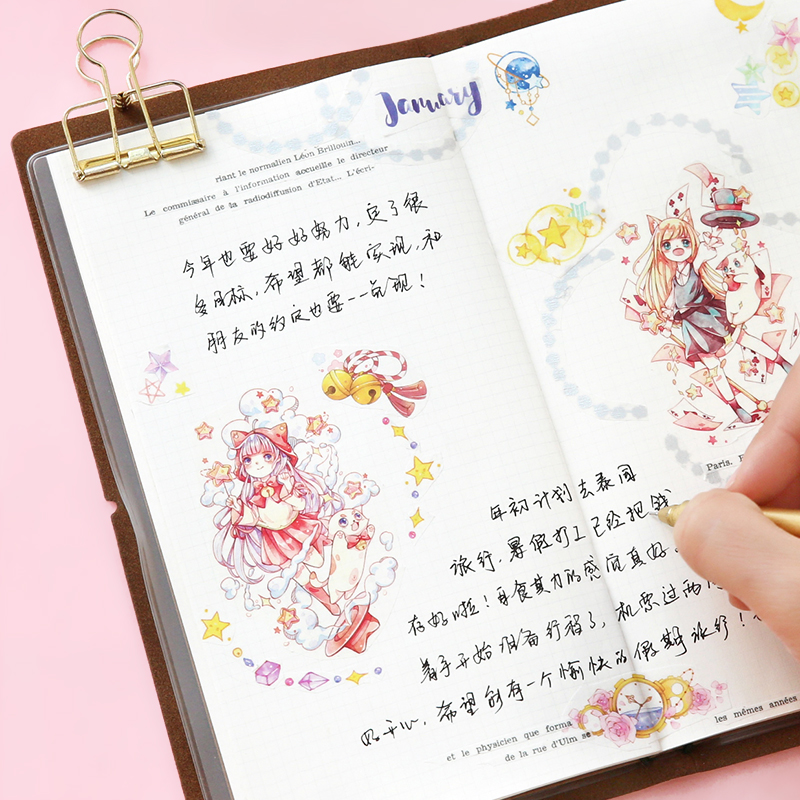 January
riant le normalien Léon Brillouin...
Le commissaire à l'information accueille le directeur
général de la radiodiffusion d'Etat... L'écri-
今年也要好好努力，定了很
多目标，希望都能实现，和
朋友的约定也要一一兑现！
Paris.
年初计划去泰国
旅行，暑假打工已经把钱
存好啦！自食其力的感觉真好
着手开始准备行程了，机票过两
好开心，希望能有一个愉快的假期旅行！
et le physicien que forma
de la rue d'Ulm se
les mêmes années